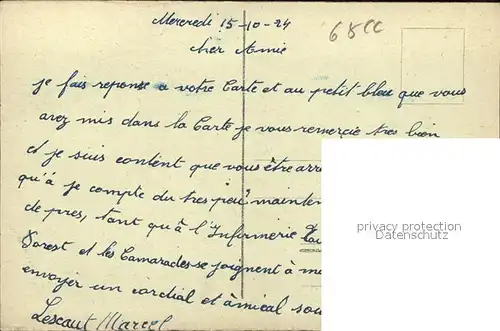 Mercredi 15-10-24
68CC
cher Amie
je fais reponse a votre Carte et au petit bleu que vous
avez mis dans la Carte je vous remercie tres bien
et je suis content que vous être arr
qu'à je compte du tres peu mainten
de pres, tant qu'à l'Infirmerie
Dorest et les Camarades se joignent à m
envoyer un cordial et amical sou
Lescaut Marcel
privacy protection
Datenschutz